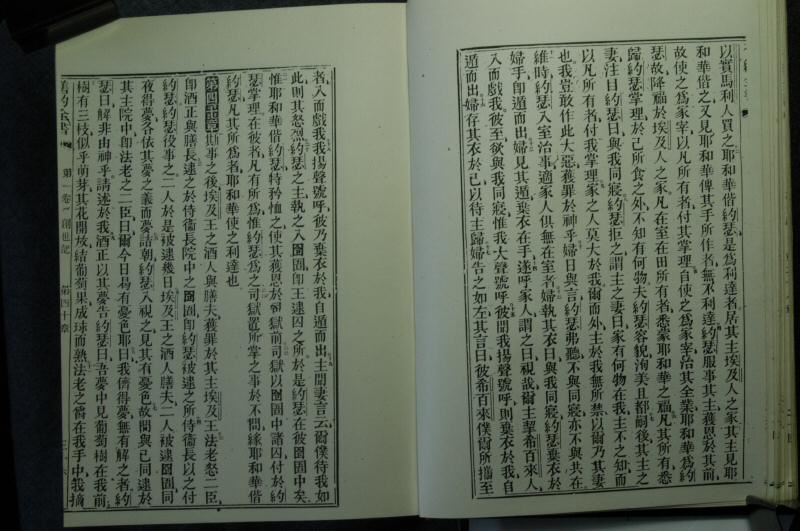 以實馬利人買之耶和華偕約瑟是爲利達者居其主埃及人之家其主見耶
和華偕之又見耶和華俾其手所作者無不利達約瑟服事其主獲恩於其前
故使之爲家宰以凡所有者付其掌理自使之爲家宰治其全業耶和華爲約
瑟故降福於埃及人之家凡在室在田所有者悉蒙耶和華之福凡其所有悉
歸約瑟掌理於己所食之外不知有何物夫約瑟容貌洵美且都嗣後其主之
妻注目約瑟曰與我同寢約瑟拒之謂主之妻曰家有何物在我主不之知而
以凡所有者付我掌理家之人莫大於我爾而外主於我無所禁以爾乃其妻
也我豈敢作此大惡獲罪於神乎婦日與言約瑟弗聽不與同寢亦不與共在
維時約瑟入室治事適家人俱無在室者婦執其衣曰與我同寢約瑟棄衣於
婦手卽遁而出婦見其遺衣在手遂呼家人謂之曰視哉爾主挈希百來人
入而戲我我彼至欲與我同寢惟我大聲號呼彼聞我揚聲號呼則棄衣於我自
遁而出婦存其衣於己以待主歸婦告之如左其言曰彼希百來僕爾所攜至
者入而戲我我揚聲號呼彼乃棄衣於我自遁而出主聞妻言云爾僕待我如
此則其怒烈約瑟之主執之入囹圄卽王逮囚之所於是約瑟在彼囹圄中矣
惟耶和華偕約瑟特矜恤之使其獲恩於司獄前司獄以囹圄中諸囚付於約
瑟掌理在彼者凡有所爲惟約瑟爲之司獄置所掌之事於不問緣耶和華偕
約瑟凡其所爲者耶和華使之利達也
第四十章 斯事之後埃及王之酒人與膳夫獲罪於其主埃及王法老怒二臣
卽酒正與膳長逮之於侍衞長院中之囹圄卽約瑟被逮之所侍衞長以之付
約瑟約瑟役事之二人於是被逮幾日埃及王之酒人膳夫二人被逮囹圄同
夜得夢各依其夢之義而夢詰朝約瑟入視之見其有憂色故問與己同逮於
其主院中卽法老之二臣曰爾今日曷有憂色耶曰我儕得夢無有解之者約
瑟曰解非由神乎請述於我酒正以其夢告約瑟曰吾夢中見葡萄樹在我前
樹有三枝似乎萌芽其花開放結葡萄果成球而熟法老之爵在我手中我摘
舊約全書 第一卷 創世記 第四十章